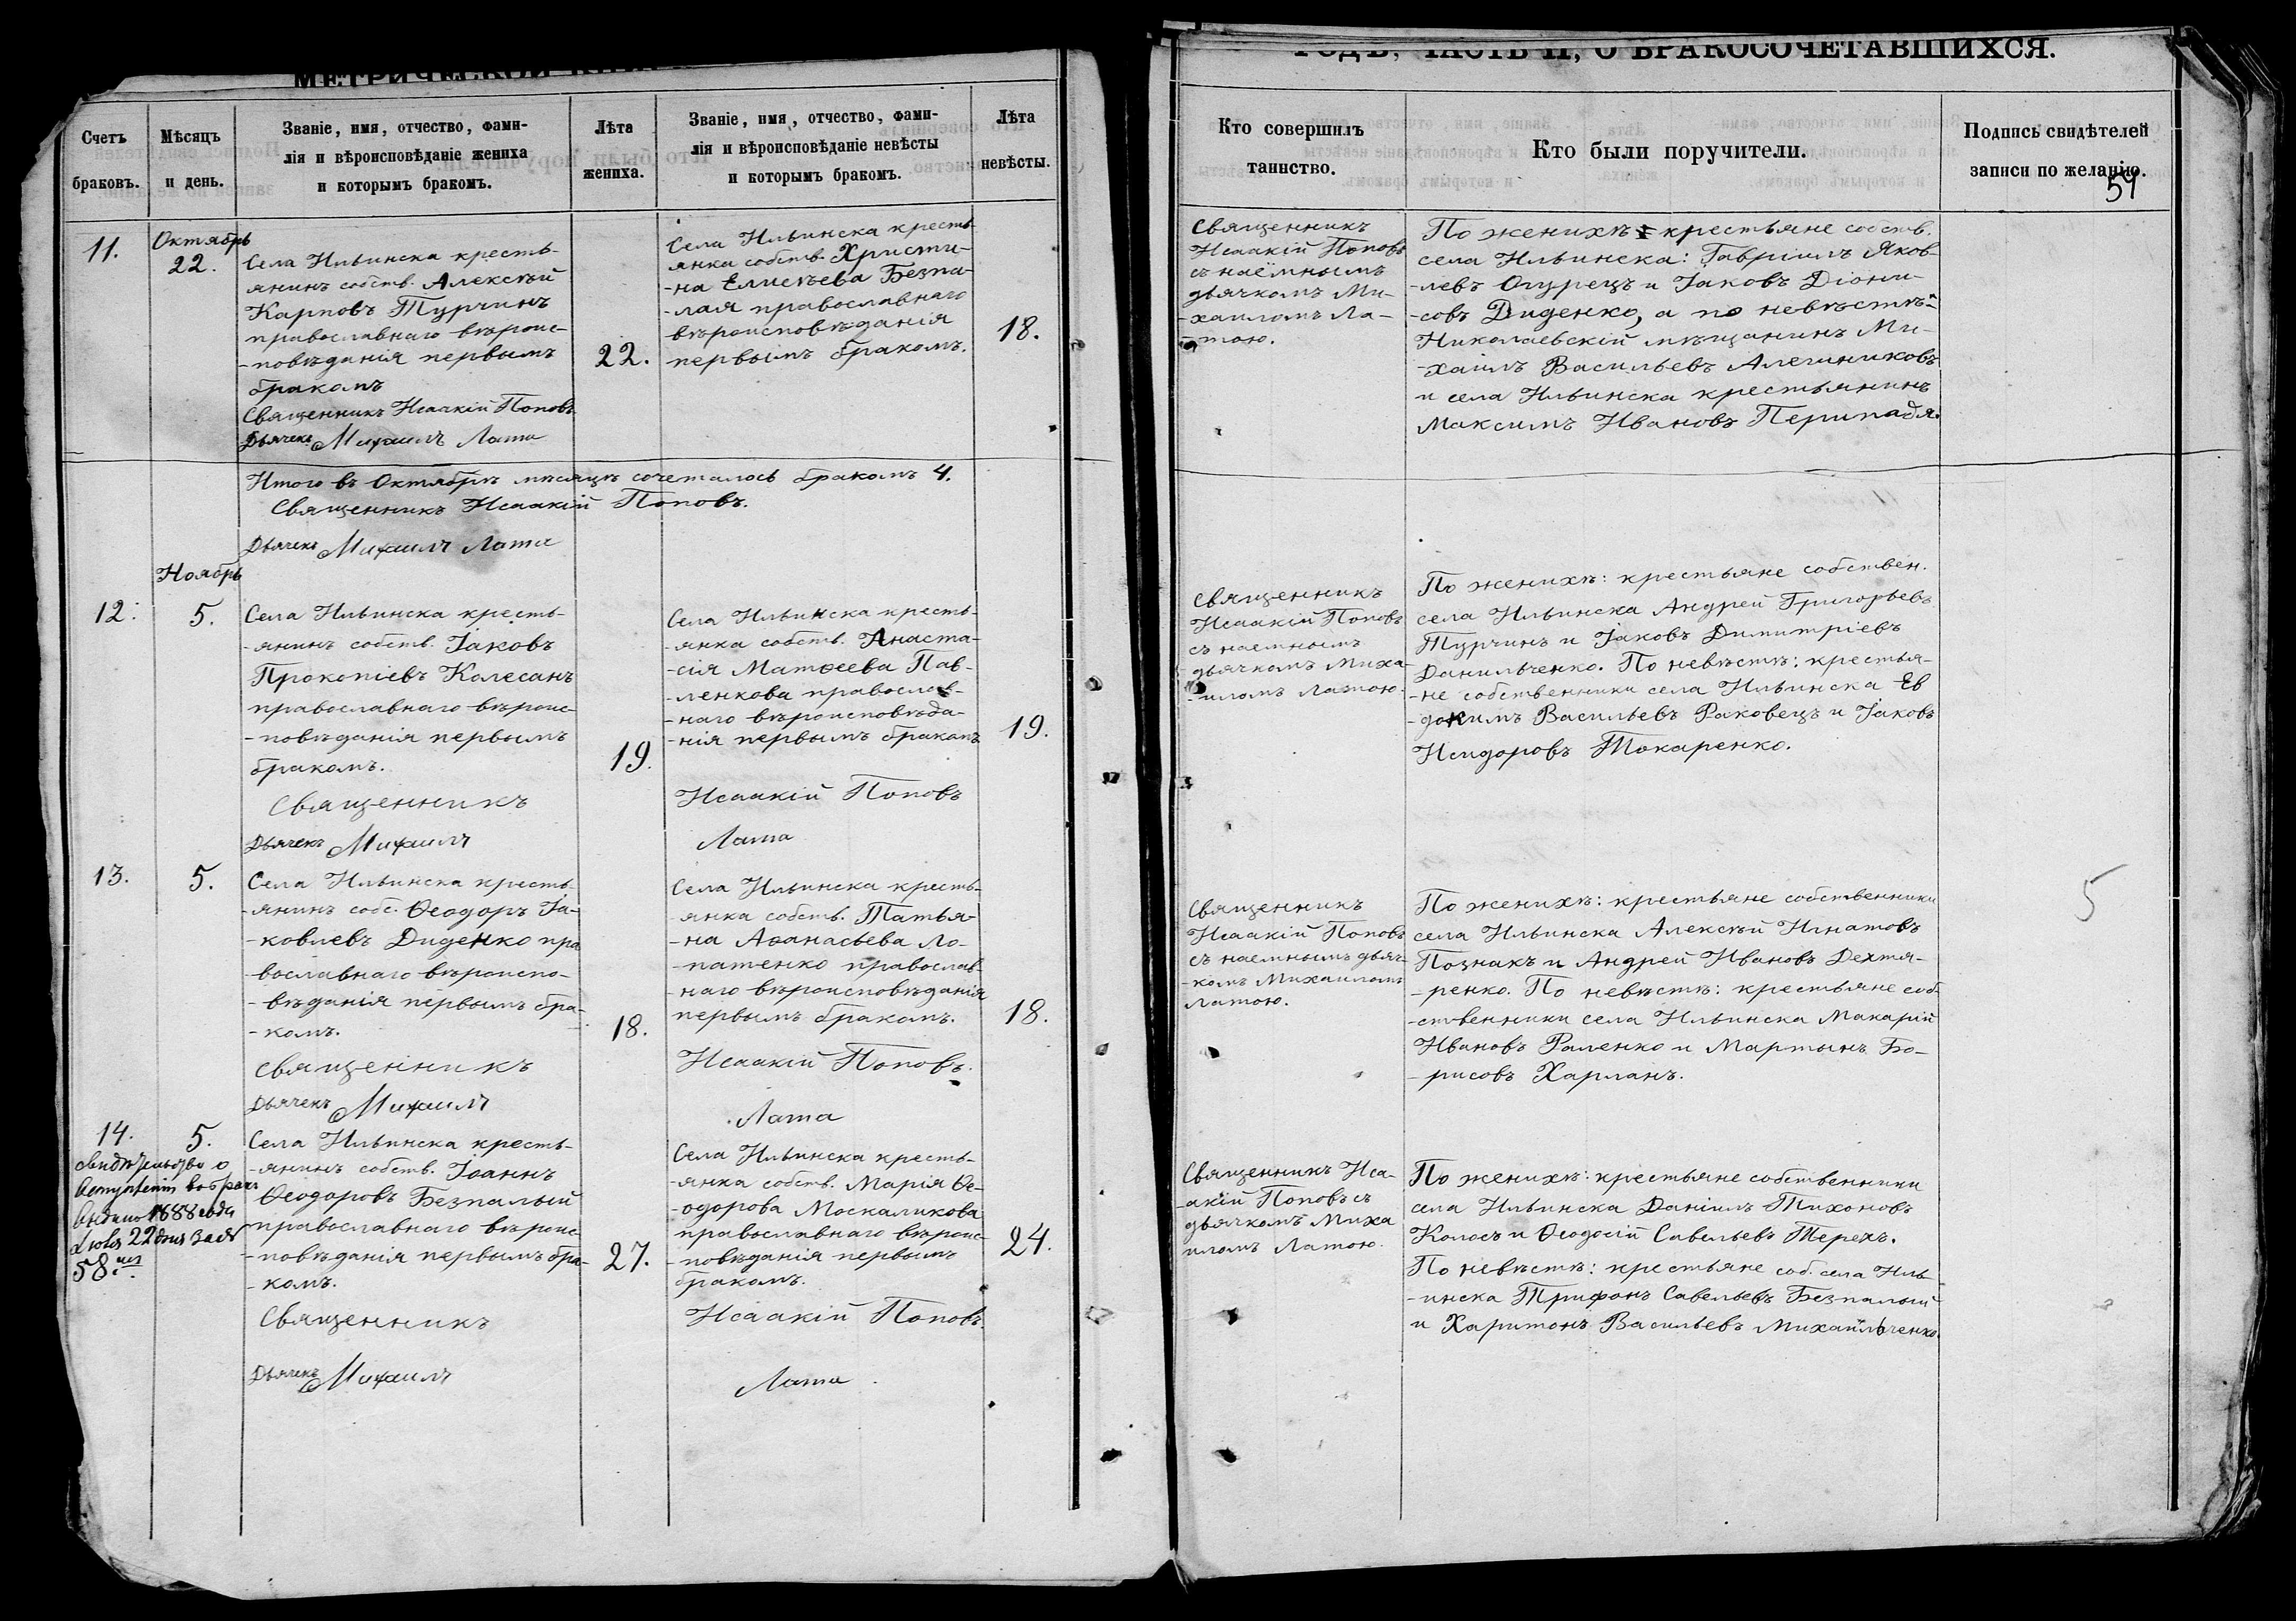 ГОДЪ, ЧАСТЬ II, О БРАКОСОЧЕТАВШИХСЯ.
Счетъ
браковъ.
Мѣсяцъ
и день.
Званіе, имя, отчество, фами-
лія и вѣроисповѣданіе жениха
и которымъ бракомъ.
Лѣта
жениха.
Званіе, имя, отчество, фами-
лія и вѣроисповѣданіе невѣсты
и которымъ бракомъ.
Лѣта
невѣсты.
Кто совершилъ
таинство.
Кто были поручители.
Подпись свидѣтелей
записи по желанію.
59
11.
Октябрь
22.
Села Ильинска кресть-
янинъ собств. Алексѣй
Карповъ Турчинъ
православнаго вѣроис-
-повѣданія первымъ
бракомъ
Священникъ Исаакій Поповъ
Дьячекъ Михаилъ Лата
22.
Села Ильинска кресть-
янка собств. Христи-
-на Елисѣева Безпа-
-лая православнаго
вѣроисповѣданія
первымъ бракомъ.
18.
Священникъ
Исаакій Поповъ
съ наёмнымъ
дьячкомъ Ми-
-хаиломъ Ла-
-тою.
По женихѣ: крестьяне собств.
села Ильинска: Гавріилъ Яков-
-левъ Огурецъ и Іаковъ Діони-
-совъ Диденко, а по невѣстѣ:
Николаевскій мѣщанинъ Ми-
-хаилъ Васильевъ Алешниковъ
и села Ильинска крестьянинъ
Максимъ Ивановъ Перипадя.
Итого въ Октябрѣ мѣсяцѣ сочеталось бракомъ 4.
Священникъ Исаакій Поповъ.
Дьячекъ Михаилъ Лата
Ноябрь
12.
5.
Села Ильинска кресть-
-янинъ собств. Іаковъ
Прокопіевъ Колесанъ
православнаго вѣроис-
-повѣданія первымъ
бракомъ.
Священникъ
Дьячекъ Михаилъ
19.
Села Ильинска кресть-
-янка собств. Анаста-
-сія Матѳеева Пав-
-ленкова православ-
-наго вѣроисповѣда-
-нія первымъ бракомъ
Исаакій Поповъ
Лата
19.
Священникъ
Исаакій Поповъ
съ наемнымъ
дьячкомъ Миха-
-иломъ Латою.
По женихѣ: крестьяне собствен.
села Ильинска Андрей Григорьевъ
Турчинъ и Іаковъ Димитріевъ
Данильченко. По невѣстѣ: крестья-
-не собственники села Ильинска Ев
-докимъ Васильевъ Раковецъ и Іаковъ
Исидоровъ Токаренко.
13.
5.
Села Ильинска кресть-
-янинъ собс. Ѳеодоръ Іа-
-ковлевъ Диденко пра
-вославнаго вѣроиспо-
-вѣданія первымъ бра-
-комъ.
Священникъ
Дьячекъ Михаилъ
18.
Села Ильинска кресть-
-янка собств. Татья-
-на Аѳанасьева Ло-
-патенко православ-
-наго вѣроисповѣданія
первымъ бракомъ.
Исаакій Поповъ.
Лата
18.
Священникъ
Исаакій Поповъ
съ наемнымъ дьяч-
-комъ Михаиломъ
Латою.
По женихѣ: крестьяне собственники
села Ильинска Алексѣй Игнатовъ
Познакъ и Андрей Ивановъ Дехтя-
-ренко. По невѣстѣ: крестьяне соб-
-ственники села Ильинска Макарій
Ивановъ Раленко и Мартынъ Бо-
-рисовъ Харланъ.
5
14.
5.
Свидѣтельство о
вступленіи въ бракъ
выдано 1888 года
22 дня за №
58
Села Ильинска кресть-
-янинъ собств. Іоаннъ
Ѳеодоровъ Безпалый
православнаго вѣроис-
-повѣданія первымъ бра-
-комъ.
Священникъ
Дьячекъ Михаилъ
27.
Села Ильинска кресть-
-янка собств. Марія Ѳе-
-одорова Москаликова
православнаго вѣроис-
-повѣданія первымъ
бракомъ.
Исаакій Поповъ.
Лата
24.
Священникъ Иса-
-акій Поповъ съ
дьячкомъ Миха
иломъ Латою.
По женихѣ: крестьяне собственники
села Ильинска Даніилъ Тихоновъ
Колосъ и Ѳеодосій Савельевъ Терехъ.
По невѣстѣ: крестьяне соб. села Иль-
-инска Трифонъ Савельевъ Безпалый
и Харитонъ Васильевъ Михайльченко.